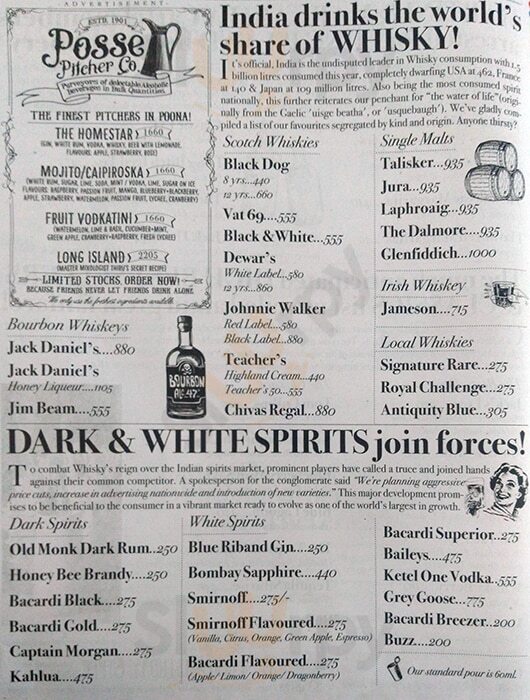 - ADVERTISEMENT -
ESTD. 1901
Posse
Pitcher Co.
Purveyors of delectable Alcoholic
beverages in Bulk Quantities.
THE FINEST PITCHERS IN POONA!
THE HOMESTAR 1660
(GIN, WHITE RUM, VODKA, WHISKY, BEER WITH LEMONADE.
FLAVOURS: APPLE, STRAWBERRY, ROSE)
MOJITO/CAIPIROSKA 1660
(WHITE RUM, SUGAR, LIME, SODA, MINT / VODKA, LIME, SUGAR ON ICE
FLAVOURS: RASPBERRY, PASSION FRUIT, MANGO, BLUEBERRY+BLACKBERRY,
APPLE, STRAWBERRY, WATERMELON, PASSION FRUIT, LYCHEE, CRANBERRY)
FRUIT VODKATINI 1660
(WATERMELON, LIME & BASIL, CUCUMBER+MINT,
GREEN APPLE, CRANBERRY+RASPBERRY, FRESH LYCHEE)
LONG ISLAND 2205
(MASTER MIXOLOGIST THIRU'S SECRET RECIPE)
LIMITED STOCKS. ORDER NOW!
BECAUSE FRIENDS NEVER LET FRIENDS DRINK ALONE.
We only use the freshest ingredients available.
India drinks the world's
share of WHISKY!
It's official, India is the undisputed leader in Whisky consumption with 1.5
billion litres consumed this year, completely dwarfing USA at 462, France
at 140 & Japan at 109 million litres. Also being the most consumed spirit
nationally, this further reiterates our penchant for "the water of life"(origi-
nally from the Gaelic 'uisge beatha', or 'usquebaugh'). We've gladly com-
piled a list of our favourites segregated by kind and origin. Anyone thirsty?
Scotch Whiskies
Black Dog
8 yrs...440
12 yrs...660
Vat 69....555
Black & White....555
Dewar's
White Label...580
12 yrs...860
Johnnie Walker
Red Label...580
Black Label...880
Teacher's
Highland Cream...440
Teacher's 50...555
Chivas Regal...880
Single Malts
Talisker...935
Jura...935
Laphroaig...935
The Dalmore...935
Glenfiddich...1000
Irish Whiskey
Jameson....715
Local Whiskies
Signature Rare...275
Royal Challenge...275
Antiquity Blue...305
Bourbon Whiskeys
Jack Daniel's....880
Jack Daniel's
Honey Liqueur....1105
Jim Beam....555
BOURBON
ALC. 47.
DARK & WHITE SPIRITS join forces!
To combat Whisky's reign over the Indian spirits market, prominent players have called a truce and joined hands
against their common competitor. A spokesperson for the conglomerate said "We're planning aggressive
price cuts, increase in advertising nationwide and introduction of new varieties." This major development prom-
ises to be beneficial to the consumer in a vibrant market ready to evolve as one of the world's largest in growth.
Dark Spirits
Old Monk Dark Rum..250
Honey Bee Brandy....250
Bacardi Black....275
Bacardi Gold....275
Captain Morgan....275
Kahlua....475
White Spirits
Blue Riband Gin....250
Bombay Sapphire....440
Smirnoff....275/-
Smirnoff Flavoured....275
(Vanilla, Citrus, Orange, Green Apple, Espresso)
Bacardi Flavoured....275
(Apple/ Limon/ Orange/ Dragonberry)
Bacardi Superior...275
Baileys....475
Ketel One Vodka..555
Grey Goose....775
Bacardi Breezer..200
Buzz....200
Our standard pour is 60ml.